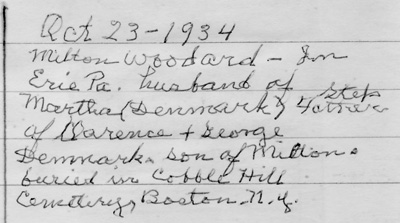 Oct 23-1934
Milton Woodard - In
Erie Pa. husband of
Martha (Denmark) & step
father
of Clarence + George
Denmark. son of Milton.
buried in Cobble Hill
Cemetery, Boston N.Y.